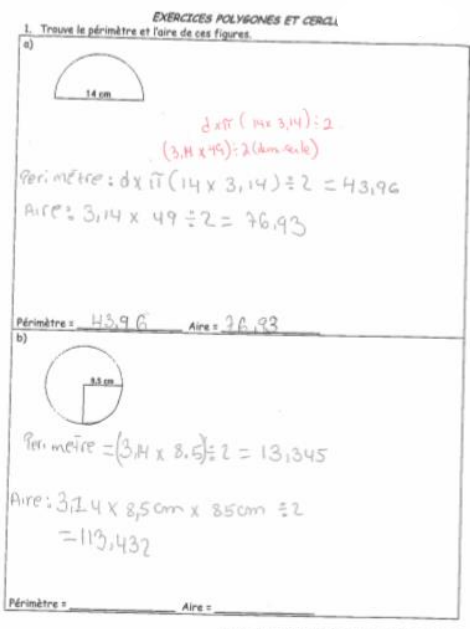 EXERCICES POLYGONES ET CERCL
1. Trouve le périmètre et l'aire de ces figures.
a)
14 cm
d x π ( 14 x 3,14) ÷ 2
(3,14 x 49) ÷ 2 (dem cercle)
Perimètre : d x π (14 x 3,14) ÷ 2 = 43,96
Aire : 3,14 x 49 ÷ 2 = 76,93
Périmètre = 43,96 Aire = 76,93
b)
8.5 cm
Perimetre = (3,14 x 8.5) ÷ 2 = 13,345
Aire : 3,14 x 8,5cm x 85cm ÷ 2
= 113,432
Périmètre = Aire =